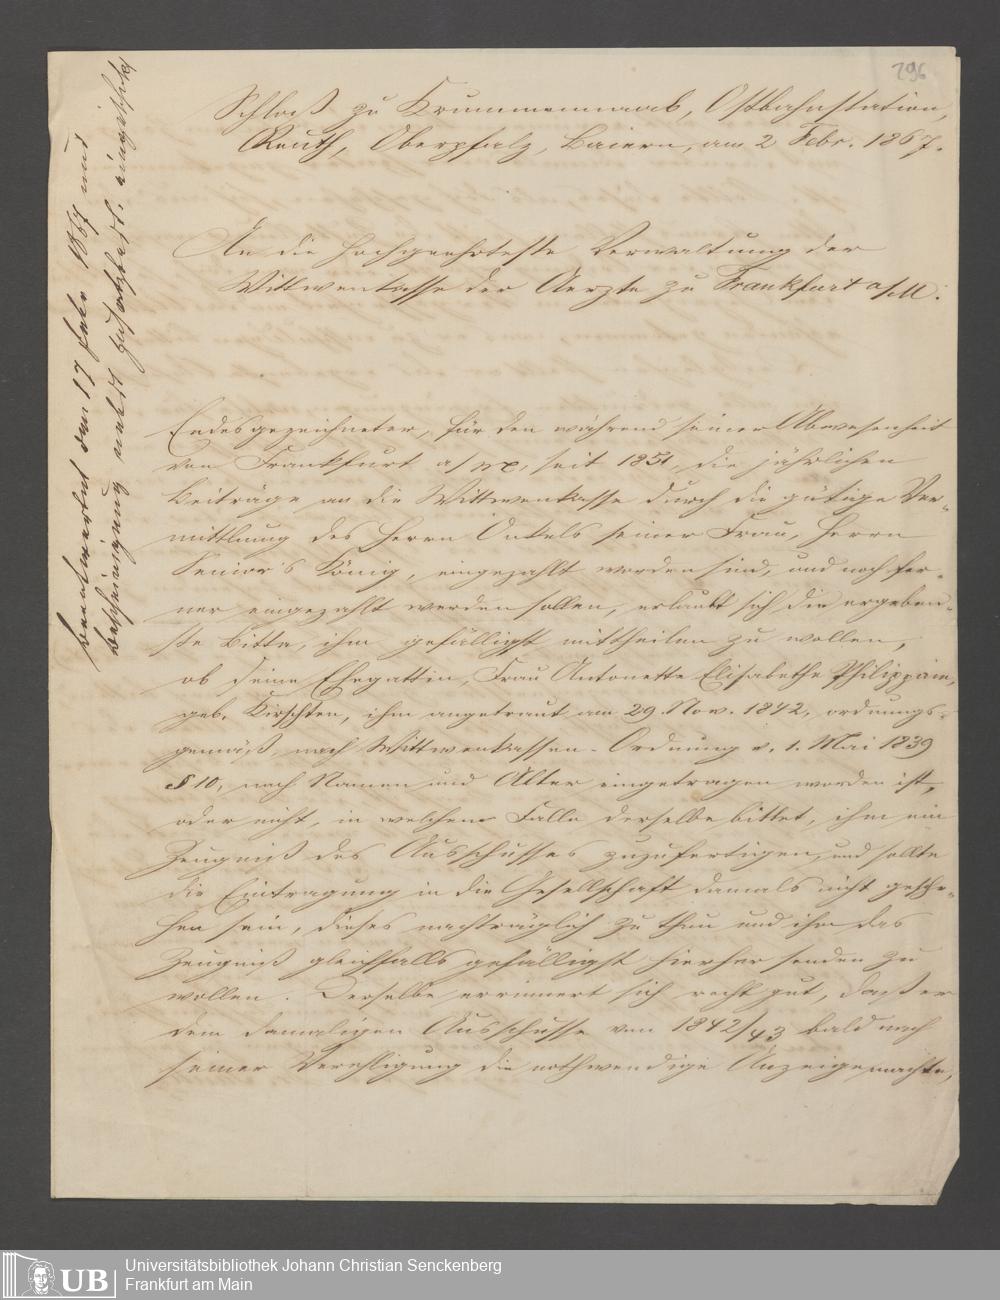 296
Schloß zu Krummennaab, Ostbahnstation,
Reuth, Oberpfalz, Baiern, am 2 Febr. 1867.
An die hochgeehrteste Verwaltung der
Wittwenkasse der Aerzte zu Frankfurt a/M.
Endesgezeichneter, für den während seiner Abwesenheit
von Frankfurt a/M, seit 1851, die jährlichen
Beiträge an die Wittwenkasse durch die gütige Ver-
mittlung des Herrn Onkels seiner Frau, Herrn
Senior's König, eingezahlt worden sind, und noch fer-
ner eingezahlt werden sollen, erlaubt sich die ergeben-
ste Bitte, ihm gefälligst mittheilen zu wollen,
ob seine Ehegattin, Frau Antonette Elisabethe Philippine,
geb. Kirschten, ihm angetraut am 29. Nov. 1842, ordnungs-
gemäß, nach Wittwenkassen-Ordnung v. 1. Mai 1839
§ 10, nach Namen und Alter eingetragen worden ist,
oder nicht, in welchem Falle derselbe bittet, ihm ein
Zeugniß des Ausschusses zuzufertigen, und sollte
die Eintragung in die Gesellschaft damals nicht gesche-
hen sein, dieses nachträglich zu thun und ihm das
Zeugniß gleichfalls gefälligst hierher senden zu
wollen. Derselbe erinnert sich recht gut, daß er
dem damaligen Ausschusse von 1842/43 bald nach
seiner Verehligung die nothwendige Anzeige machte,
beantwortet den 17 Febr 1867 und
Bescheinigung nebst eingeschickt
UB
Universitätsbibliothek Johann Christian Senckenberg
Frankfurt am Main